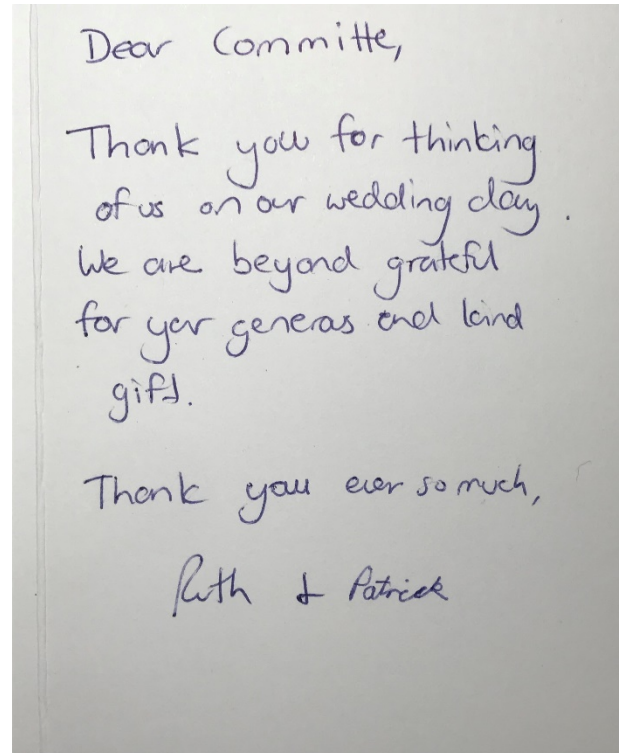 Dear Committe,
Thank you for thinking
of us on our wedding day.
We are beyond grateful
for your generous and kind
gift.
Thank you ever so much,
Ruth & Patrick